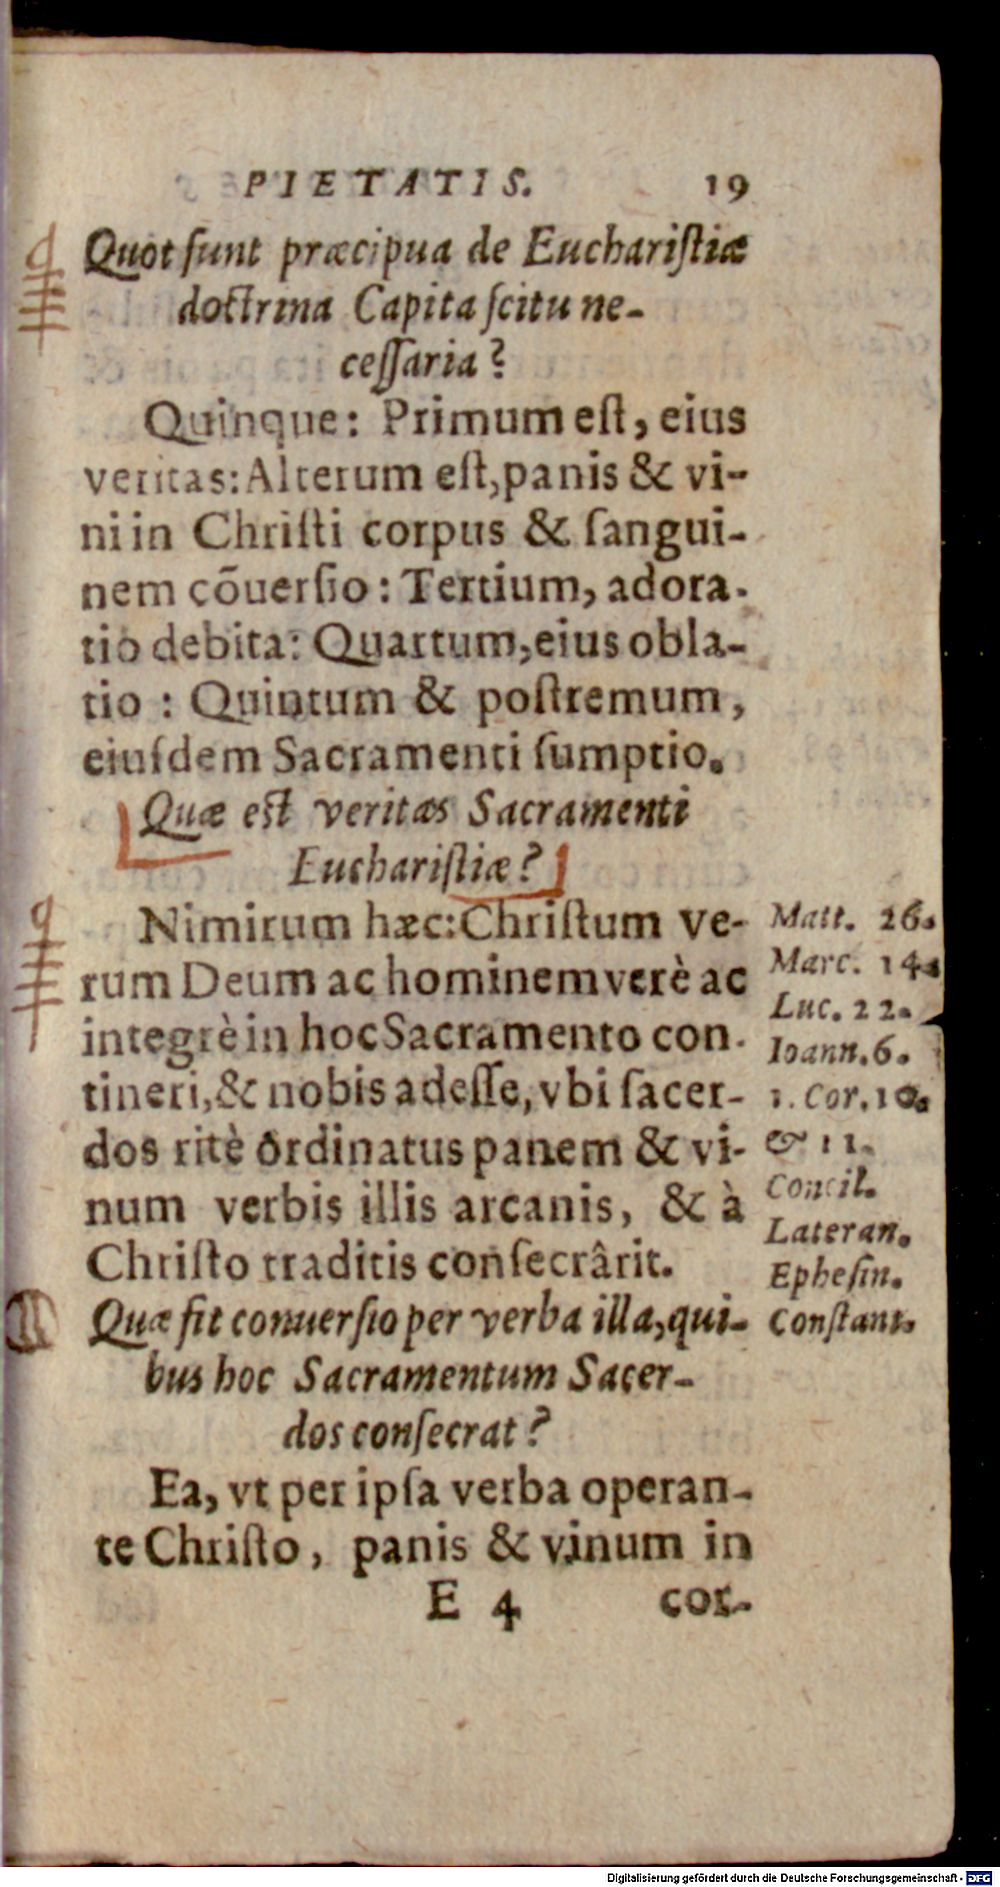 PIETATIS. 19
Quot sunt præcipua de Euchariſtiæ
doctrina Capita ſcitu ne-
ceſſaria?
Quinque: Primum eſt, eius
veritas: Alterum eſt, panis & vi-
ni in Chriſti corpus & ſangui-
nem cõuerſio: Tertium, adora-
tio debita: Quartum, eius obla-
tio: Quintum & poſtremum,
eiuſdem Sacramenti ſumptio.
Quæ est veritas Sacramenti
Euchariſtiæ?
Nimirum hæc: Chriſtum ve-
rum Deum ac hominem verè ac
integrè in hoc Sacramento con-
tineri, & nobis adeſſe, vbi ſacer-
dos ritè ordinatus panem & vi-
num verbis illis arcanis, & à
Chriſto traditis conſecrârit.
Matt. 26.
Marc. 14.
Luc. 22.
Ioann. 6.
1. Cor. 10.
& 11.
Concil.
Lateran.
Epheſin.
Conſtant.
Quæ fit conuerſio per verba illa, qui-
bus hoc Sacramentum Sacer-
dos conſecrat?
Ea, vt per ipſa verba operan-
te Chriſto, panis & vinum in
E 4 cor-
Digitalisierung gefördert durch die Deutsche Forschungsgemeinschaft - DFG